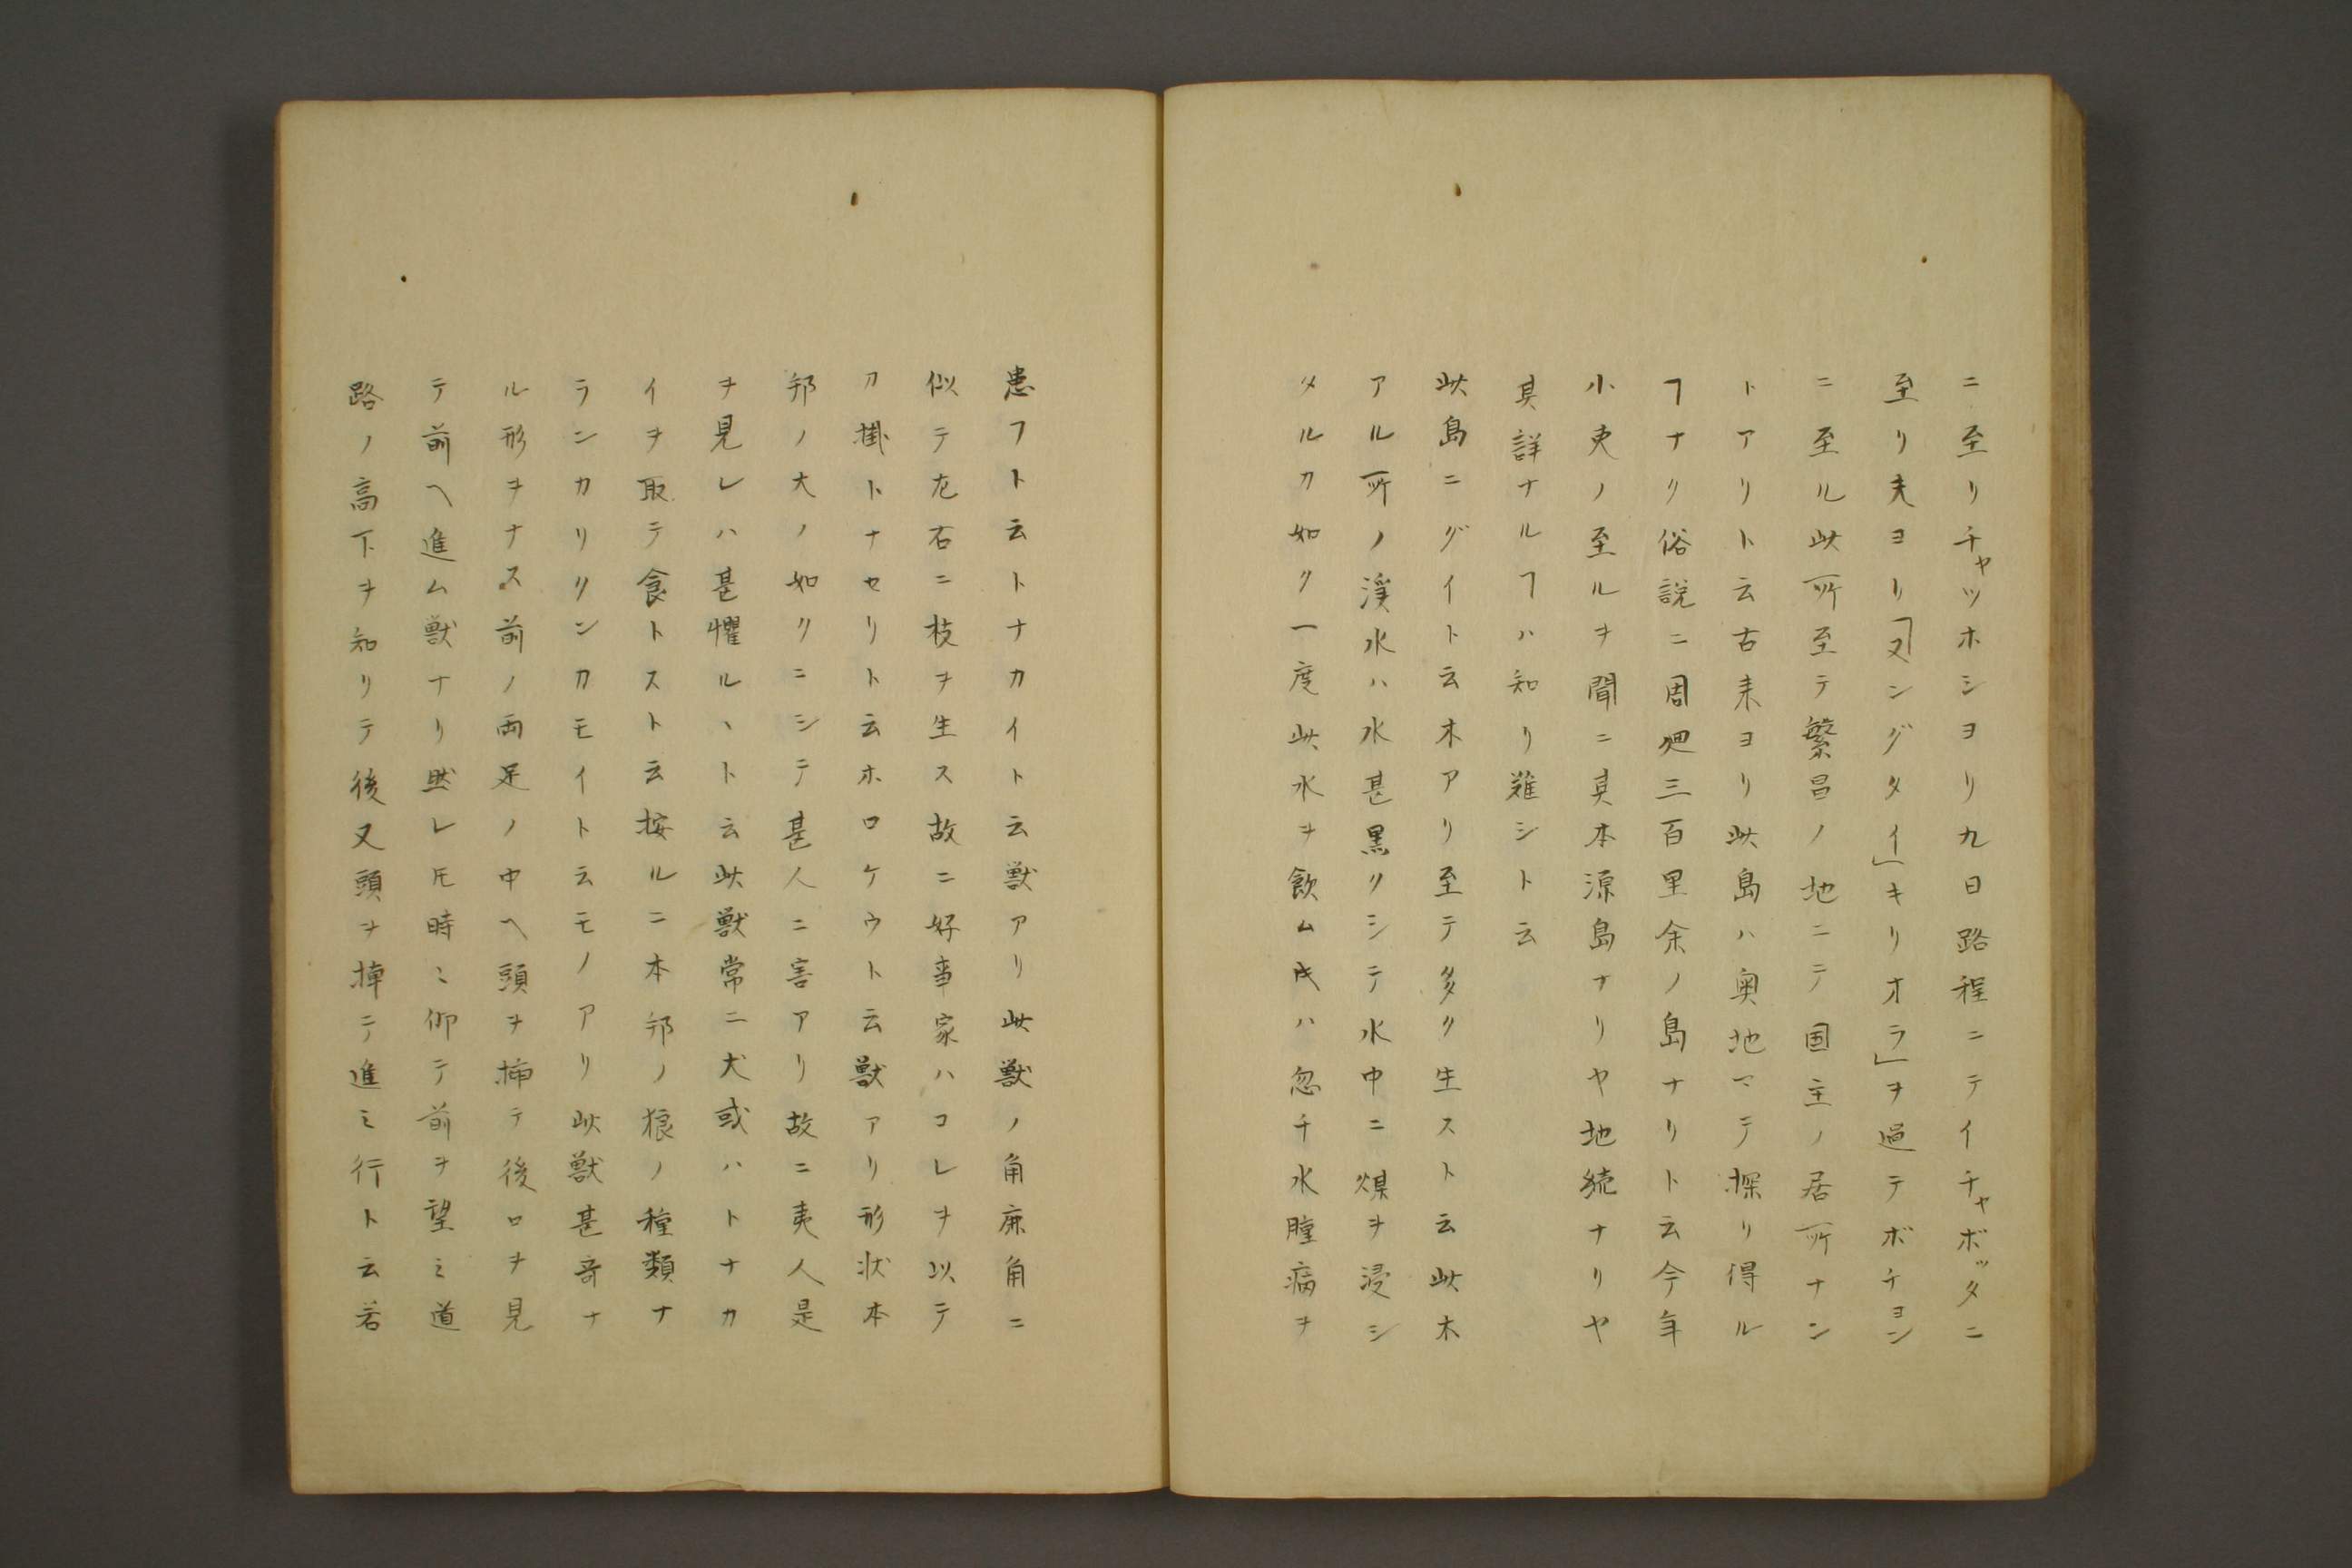 ニ至リチャツホシヨリ九日路程ニテイチャボッタニ
至リ夫ヨリ「ヌングタイ」キリオラ」ヲ過テボチヨン
ニ至ル此所至テ繁昌ノ地ニテ国主ノ居所ナン
トアリト云古来ヨリ此島ハ奥地マテ探リ得ル
ヿナク俗説ニ周廻三百里余ノ島ナリト云今年
小吏ノ至ルヲ聞ニ真本源島ナリヤ地続ナリヤ
其詳ナルヿハ知リ難シト云
此島ニグイト云木アリ至テ多ク生スト云此木
アル所ノ渓水ハ水甚黒クシテ水中ニ煤ヲ浸シ
タルカ如ク一度此水ヲ飲ム氏ハ忽チ水腫病ヲ
患フト云トナカイト云獣アリ此獣ノ角麻角ニ
似テ左右ニ枝ヲ生ス故ニ好事家ハコレヲ以テ
刀掛トナセリト云ホロケウト云獣アリ形状本
邦ノ犬ノ如クニシテ甚人ニ害アリ故ニ夷人是
ヲ見レハ甚懼ルヽト云此獣常ニ犬或ハトナカ
イヲ取テ食トスト云按ルニ本邦ノ狼ノ種類ナ
ランカリリンカモイト云モノアリ此獣甚奇ナ
ル形ヲナス前ノ両足ノ中ヘ頭ヲ挿テ後ロヲ見
テ前ヘ進ム獣ナリ然レ𪜈時〻仰テ前ヲ望ミ道
路ノ高下ヲ知リテ後又頭ヲ挿テ進ミ行ト云若